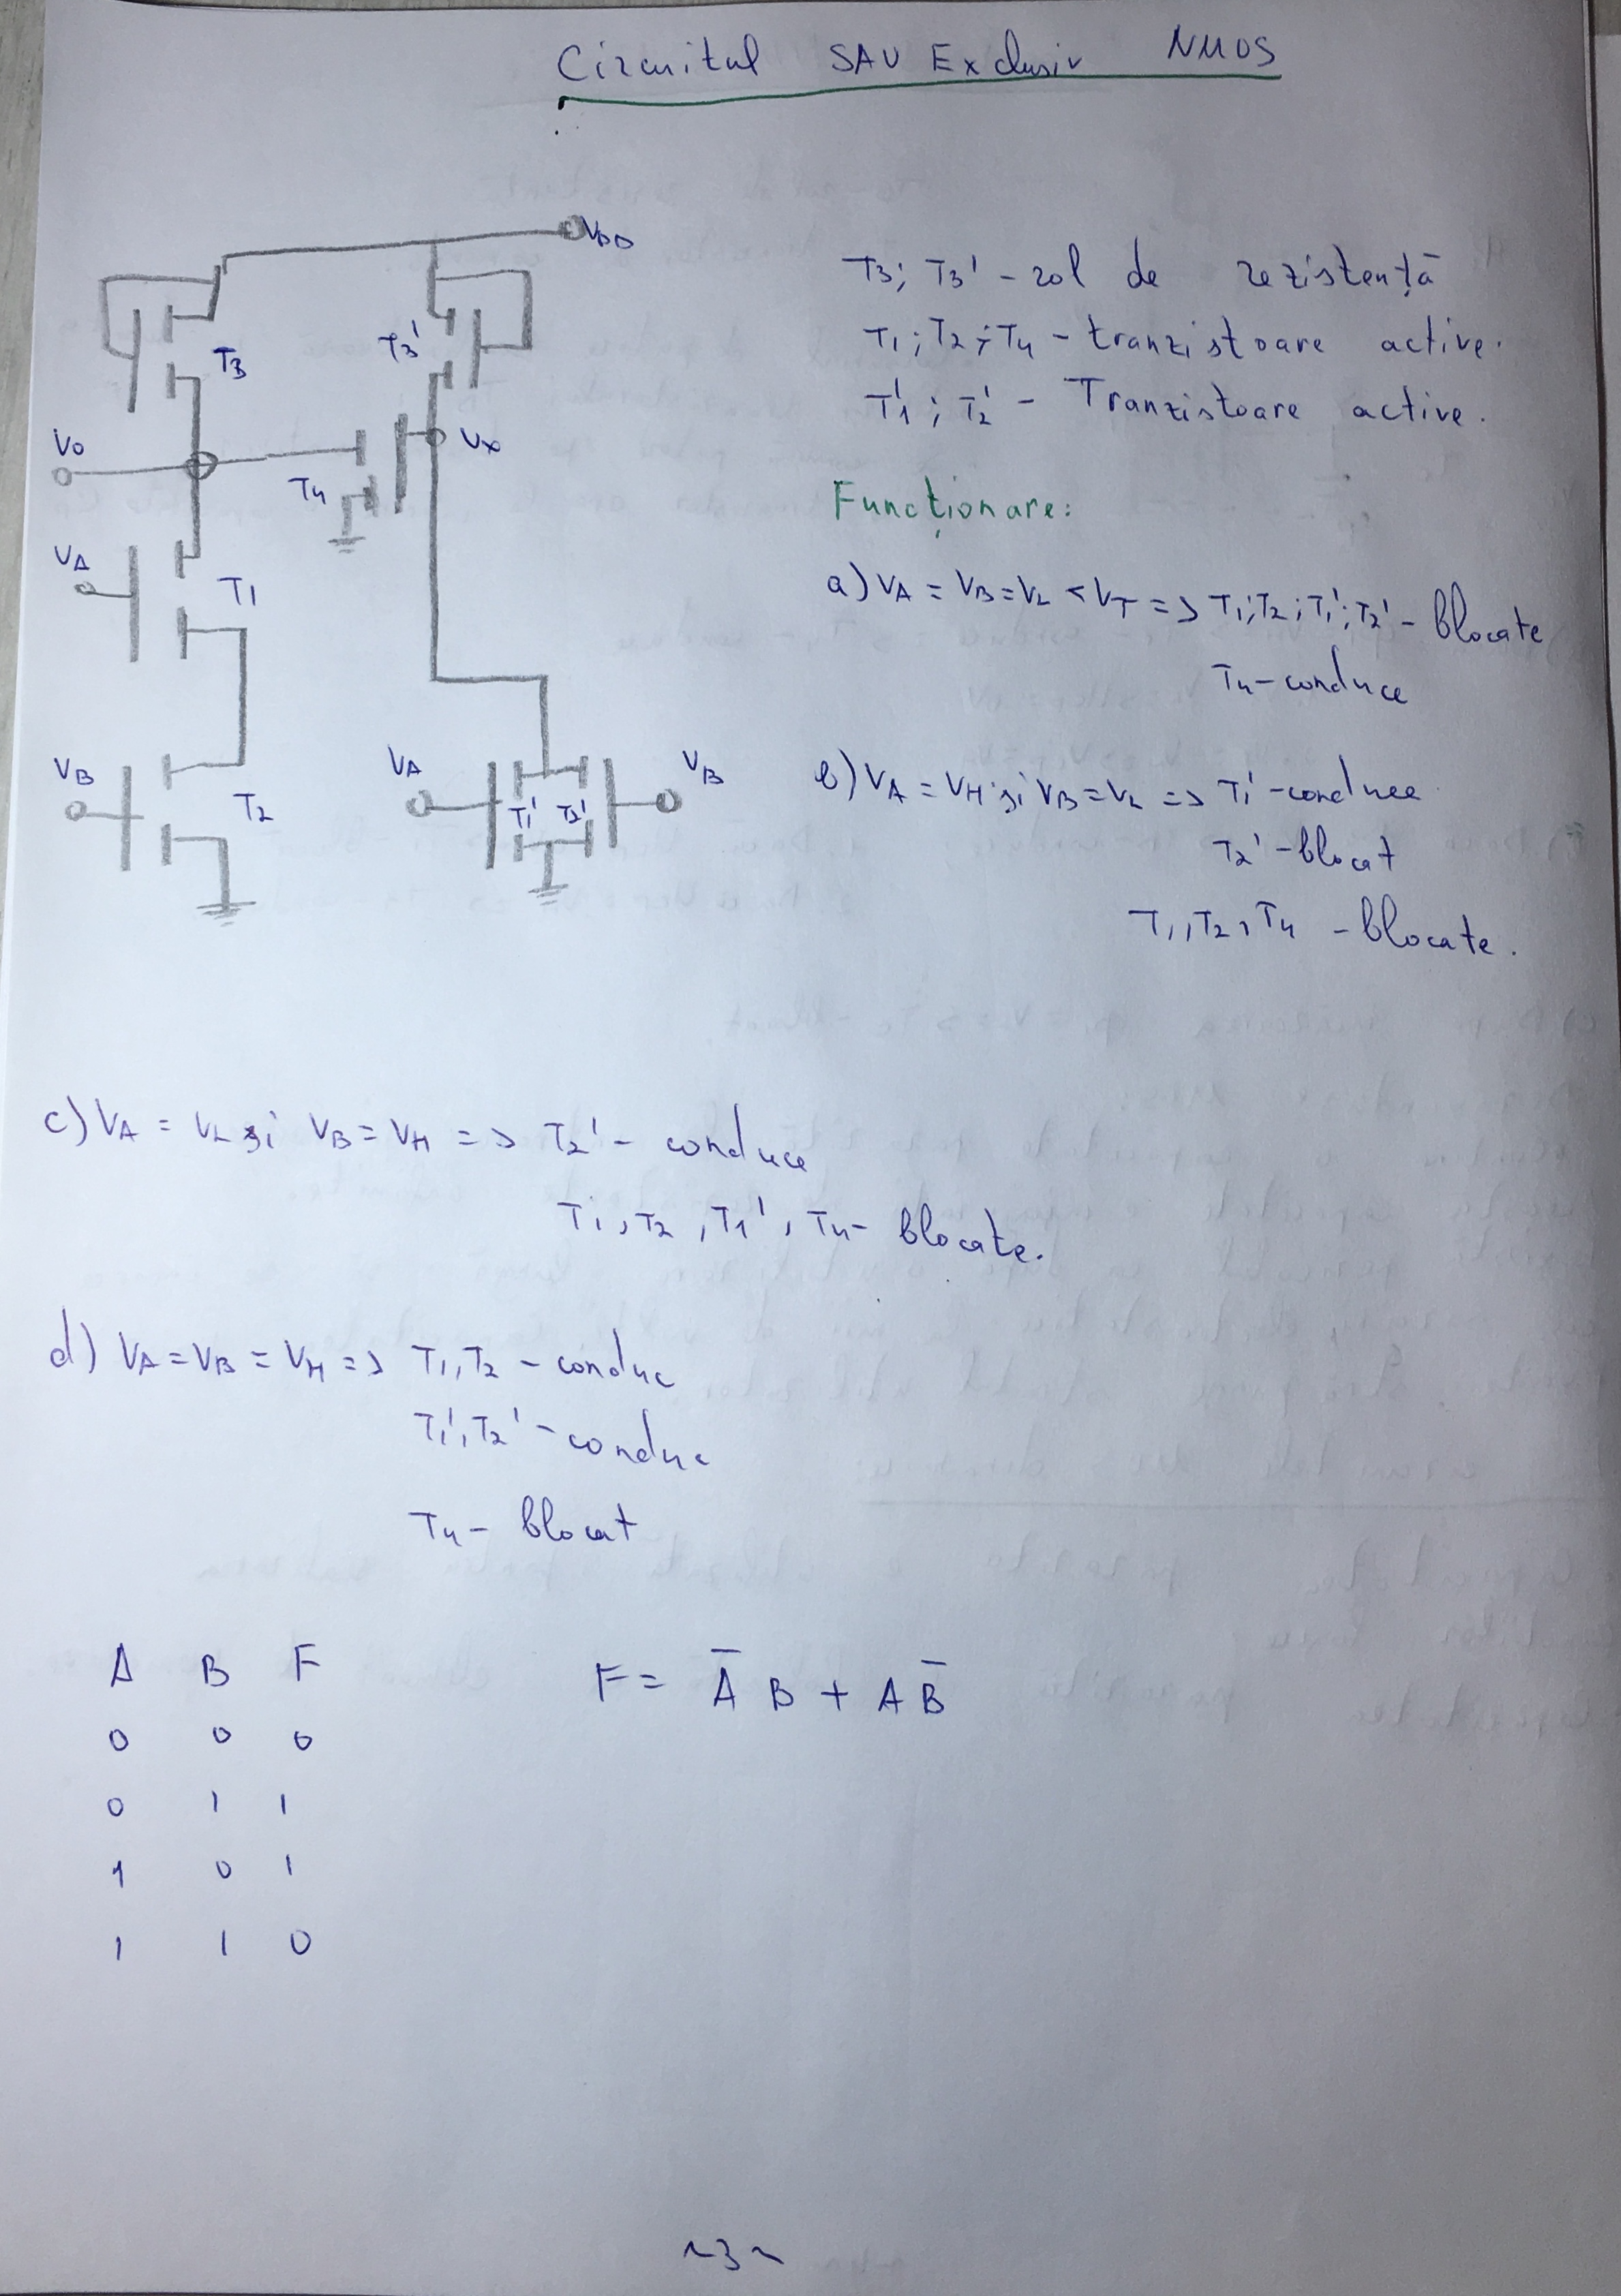 Circuitul SAU Exclusiv NMOS
VDD
T3
T3'
V0
Vx
T4
VA
T1
VB
T2
VA
T1' T2'
VB
T3; T3' - rol de rezistență
T1; T2; T4 - tranzistoare active.
T1'; T2' - Tranzistoare active.
Funcționare:
a) VA = VB = VL < VT => T1; T2; T1'; T2' - blocate
T4 - conduce
b) VA = VH și VB = VL => T1' - conduce
T2' - blocat
T1, T2, T4 - blocate.
c) VA = VL și VB = VH => T2' - conduce
T1, T2, T1', T4 - blocate.
d) VA = VB = VH => T1, T2 - conduc
T1', T2' - conduc
T4 - blocat
A B F
0 0 0
0 1 1
1 0 1
1 1 0
F = A̅ B + A B̅
~3~